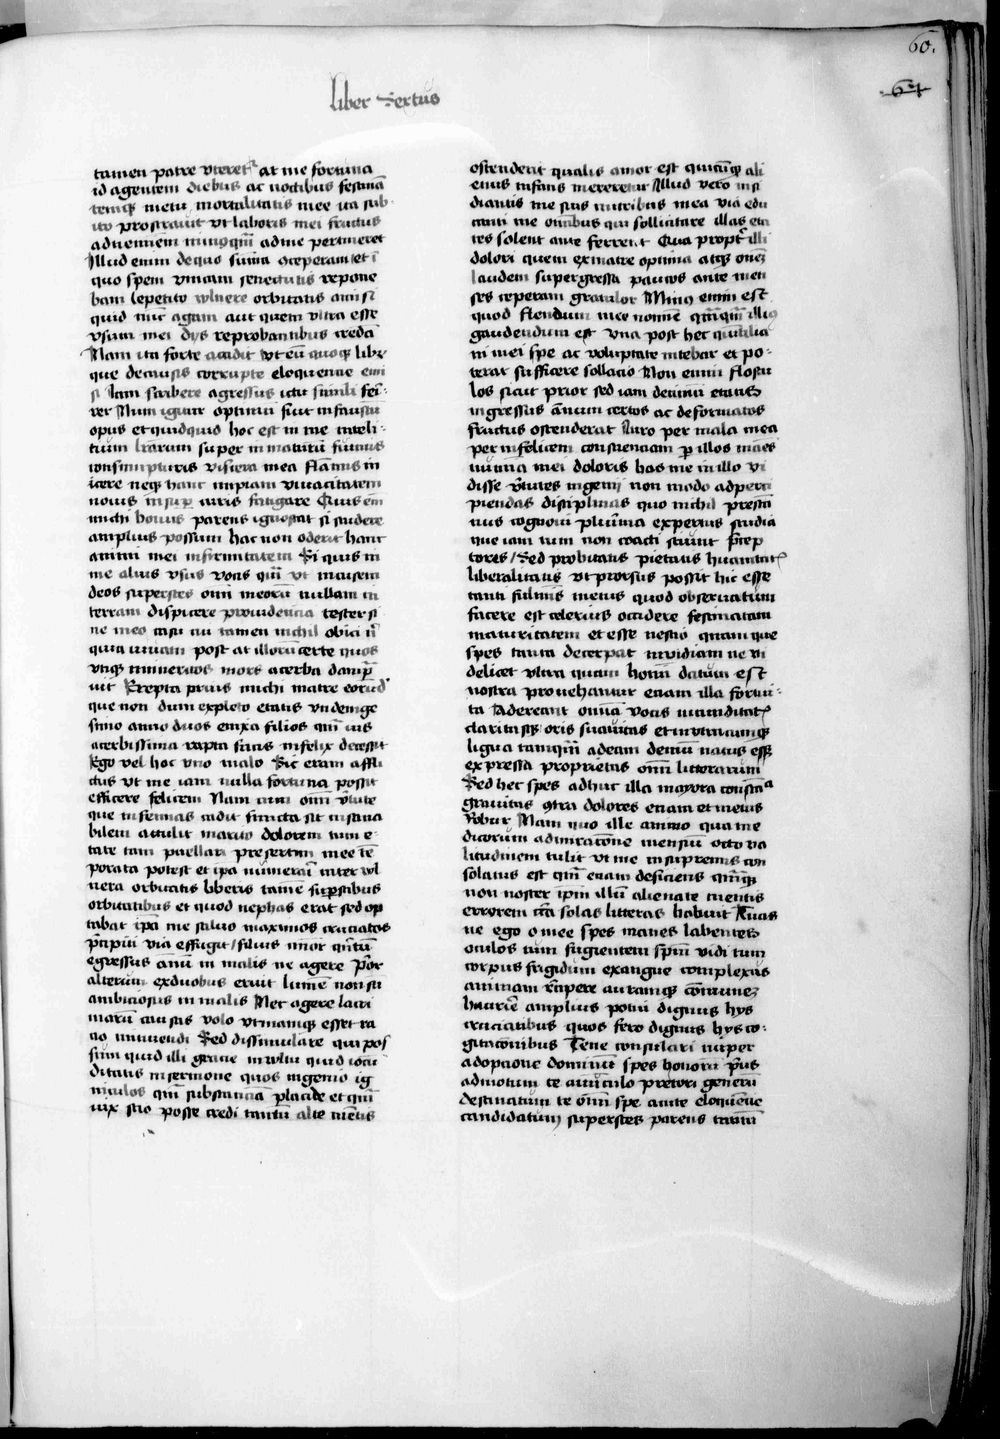 60.
64
liber Sextus
tamen patre vteret᷑ at me fortuna
id agentem diebus ac noctibus festinā
temqꝫ metu mortalitatis mee ita sub-
ito prostrauit vt laboris mei fructus
ad neminem minusqm̄ ad me pertineret
Illud enim de quo sūma ceperam et ī
quo spem vnicam senectutis repone
bam repetito vulnere orbitatis amisi
quid nūc agam aut quem vltra esse
vsum mei dijs reprobantibus credā
Nam ita forte accidit vt eū quoqꝫ libr
que de causis corrupte eloquencie emi
si Iam scribere agressus ictu simili feri-
rer Num igitur optimū fuit infaustū
opus et quidquid hoc est in me infeli-
cium lr̄arum super in maturū funus
consumpturis viscera mea flāmis in
icere neqꝫ hanc impiam viuacitatem
nouis insup̄ curis fatigare Quis em̄
michi bonus parens ignoscat si studere
amplius possum hac non oderit hanc
animi mei infirmitatem Si quis in
me alius vsus vocis qm̄ vt incusem
deos superstes om̄ meorū nullam in
terram dispicere prouidencia tester si
ne meo casu cui tamen nichil obici n̄
quia viuam post at illorū certe quos
vtiqꝫ inmeritos mors acerba dampn̄
uit Erepta prius michi matre eorūd
que non dum expleto etatis vndeuige
simo anno duos enixa filios qm̄uis
acerbissima rapta fatis infelix decessit
Ego vel hoc vno malo sic eram affli
ctus vt me iam nulla fortuna possit
efficere felicem Nam cum om̄i v̄tute
que in feminas cadit functa sit insana
bilem attulit marito dolorem tum e-
tate tam puellari presertim mee cō
porata potest et ip̄a numerari inter vul
nera orbitatis liberis tamē sup̄stibus
orbitatibus et quod nephas erat sed op
tabat ip̄a me saluo maximos cruciatos
p̄cipiti via effugit / filius minor qn̄tū
egressus annū in malis ne agere p̄or
alterum ex duobus eruit lumē non sū
ambiciosus in malis Nec agere lacri
marū causas volo vtinamqꝫ esset ra
cio minuendi Sed dissimulare qui pos
sum quid illi gracie in vultu quid iocū
ditatis in sermone quos ingenio ig
niculos qm̄ substanciā placide et qm̄
vix scio posse credi tantū alte mētis
ostenderit qualis amor est quicūqꝫ ali
enus infans mereretur Illud vero insi
diantis me suis nutribus mea via edu
canti me omībus qui sollicitare illas eta
tes solent ante ferret Qua propt̄ illi
dolori quem ex matre optima atqꝫ onēꝫ
laudem supergressa paucos ante men
ses ceperam gratulor Minus enim est
quod flendum meo nomīe qm̄qm̄ illius
gaudendum est vna post hec quītilia
ni mei spe ac voluptate nitebar et po-
terat sufficere sollacio Non enim flosu
los sicut prior sed iam decimū etatis
ingressus annum certos ac deformatos
fructus ostenderat Iuro per mala mea
per infelicem conscienciam p̄ illos maēs
numina mei doloris has me in illo vi
disse v̄tutes ingenij non modo ad perci
piendas disciplinas quo nichil prestā
cius cognoui plurima expertus studia
que iam tum non coacti sciunt p̄cep
tores / Sed probitatis pietatis humanitat᷑
liberalitatis vt prorsus possit hic esse
tanti fulmīs metus quod obseruatum
facere est celerius occidere festinatam
maturitatem et esse nescio quam que
spes tanta decerpat inuidiam ne vi
delicet vltra quam homī datum est
nostra prouehantur eciam illa fortui-
ta Aderant omīa vocis iocunditat᷑
claritasqꝫ oris suauitas et in vtracumqꝫ
ligua tamqm̄ ad eam demū natus essꝫ
expressa proprietas om̄i litterarum
Sed hec spes adhuc illa mayora constāciā
grauitas 9tra dolores eciam et metus
Robur Nam quo ille animo qua me
dicorum admiracōne mensiū octo va
litudinem tulit vt me in supremis con
solatus est qm̄ eciam deficiens qm̄qꝫ
non noster ip̄m illū alienate mentis
errorem c̄ca solas litteras habuit Tuas
ne ego o mee spes inanes labentes
oculos tum fugientem sp̄m vidi tum
corpus frigidum exangue complexus
animam r̄cipere auramqꝫ cōmunēꝫ
haurire amplius potui dignus hijs
cruciatibus quos fero dignus hijs co-
gitacōnibus Tene consulari nuper
adopcione dominū spes honorū p̄us
admotum te auūculo pretori generū
destinatum te om̄ī spe auite eloquēcie
candidatum superstes parens tantū